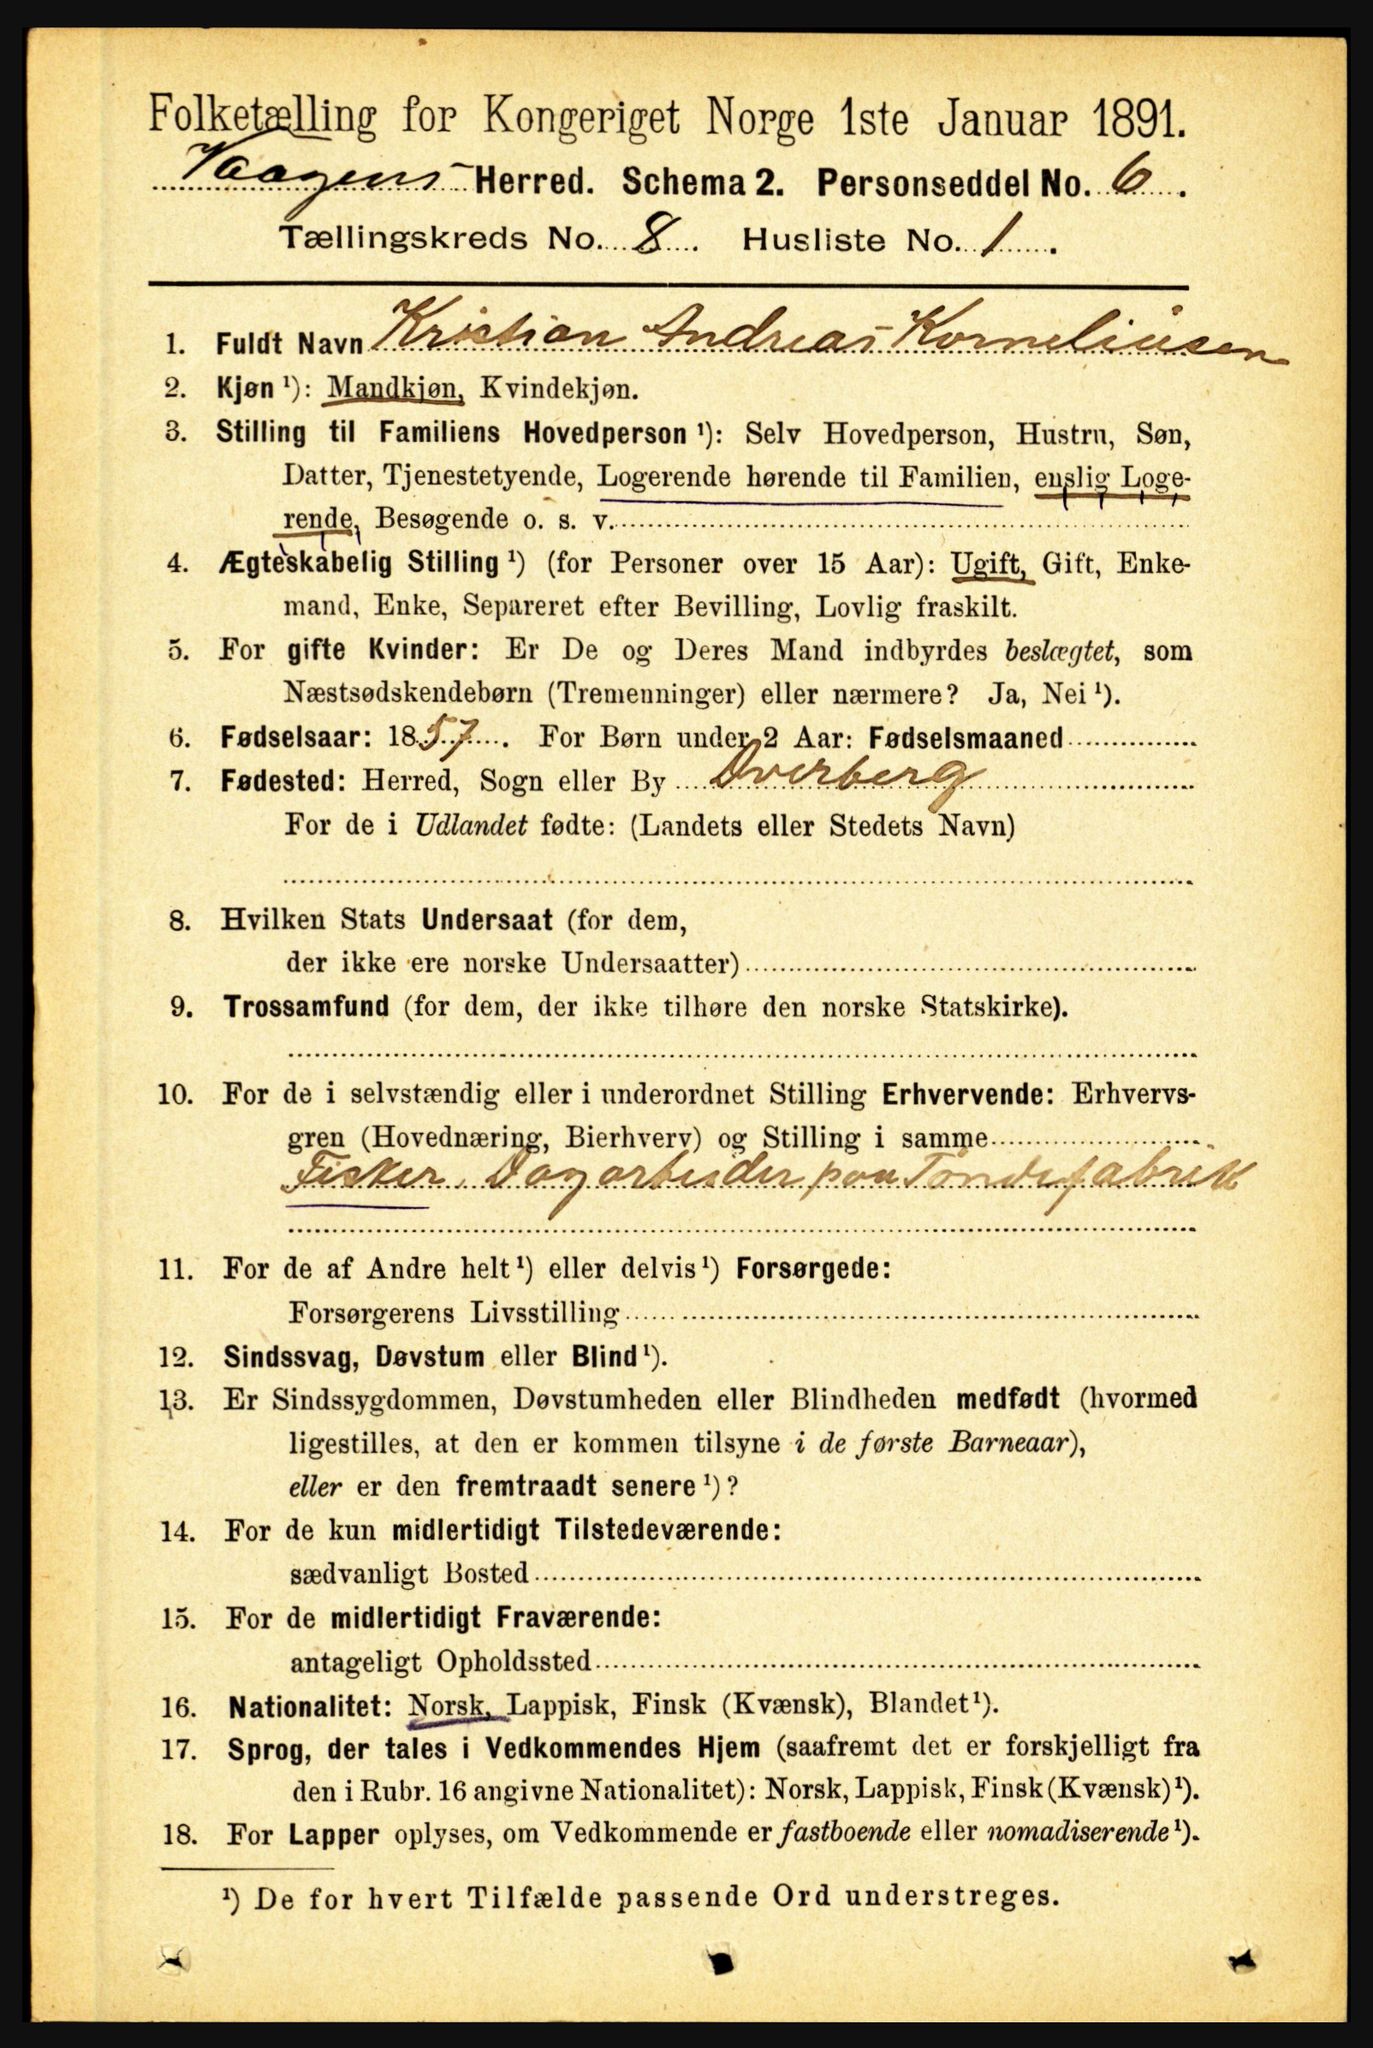 Folketælling for Kongeriget Norge 1ste Januar 1891.
Vaagens Herred. Schema 2. Personseddel No. 6.
Tællingskreds No. 8. Husliste No. 1.
1. Fuldt Navn Kristian Andreas Korneliusen
2. Kjøn ¹): Mandkjøn, Kvindekjøn.
3. Stilling til Familiens Hovedperson ¹): Selv Hovedperson, Hustru, Søn,
Datter, Tjenestetyende, Logerende hørende til Familien, enslig Loge-
rende, Besøgende o. s. v.
4. Ægteskabelig Stilling ¹) (for Personer over 15 Aar): Ugift, Gift, Enke-
mand, Enke, Separeret efter Bevilling, Lovlig fraskilt.
5. For gifte Kvinder: Er De og Deres Mand indbyrdes beslægtet, som
Næstsødskendebørn (Tremenninger) eller nærmere? Ja, Nei ¹).
6. Fødselsaar: 1857. For Børn under 2 Aar: Fødselsmaaned
7. Fødested: Herred, Sogn eller By Dverberg
For de i Udlandet fødte: (Landets eller Stedets Navn)
8. Hvilken Stats Undersaat (for dem,
der ikke ere norske Undersaatter)
9. Trossamfund (for dem, der ikke tilhøre den norske Statskirke).
10. For de i selvstændig eller i underordnet Stilling Erhvervende: Erhvervs-
gren (Hovednæring, Bierhverv) og Stilling i samme
Fisker, Dagarbeider paa Tøndefabrik
11. For de af Andre helt ¹) eller delvis ¹) Forsørgede:
Forsørgerens Livsstilling
12. Sindssvag, Døvstum eller Blind ¹).
13. Er Sindssygdommen, Døvstumheden eller Blindheden medfødt (hvormed
ligestilles, at den er kommen tilsyne i de første Barneaar),
eller er den fremtraadt senere ¹)?
14. For de kun midlertidigt Tilstedeværende:
sædvanligt Bosted
15. For de midlertidigt Fraværende:
antageligt Opholdssted
16. Nationalitet: Norsk, Lappisk, Finsk (Kvænsk), Blandet ¹).
17. Sprog, der tales i Vedkommendes Hjem (saafremt det er forskjelligt fra
den i Rubr. 16 angivne Nationalitet): Norsk, Lappisk, Finsk (Kvænsk) ¹).
18. For Lapper oplyses, om Vedkommende er fastboende eller nomadiserende ¹).
¹) De for hvert Tilfælde passende Ord understreges.